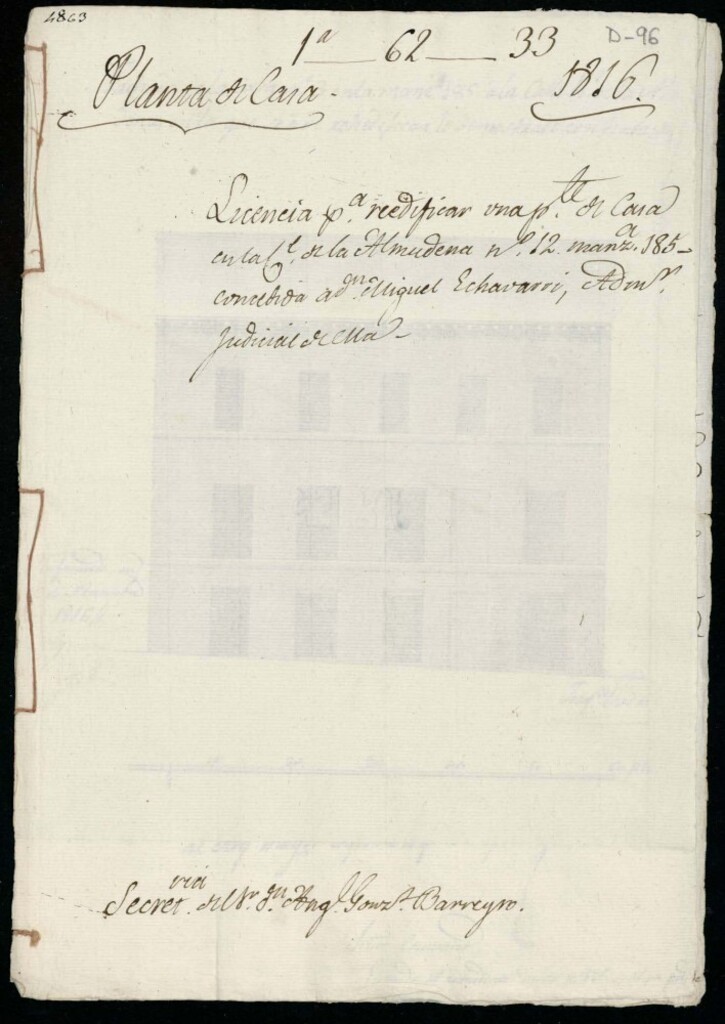 4863
D-96
1ª 62 33
Planta de Casa 1816.
Licencia pª. reedificar una pte. de Casa
en la C. de la Almudena nº. 12. manzª. 185
concedida a dn. Miguel Echavarri, Admr.
Judicial de ella
Secretria. del Sr. dn. Angl. Gonzz. Barreyro.